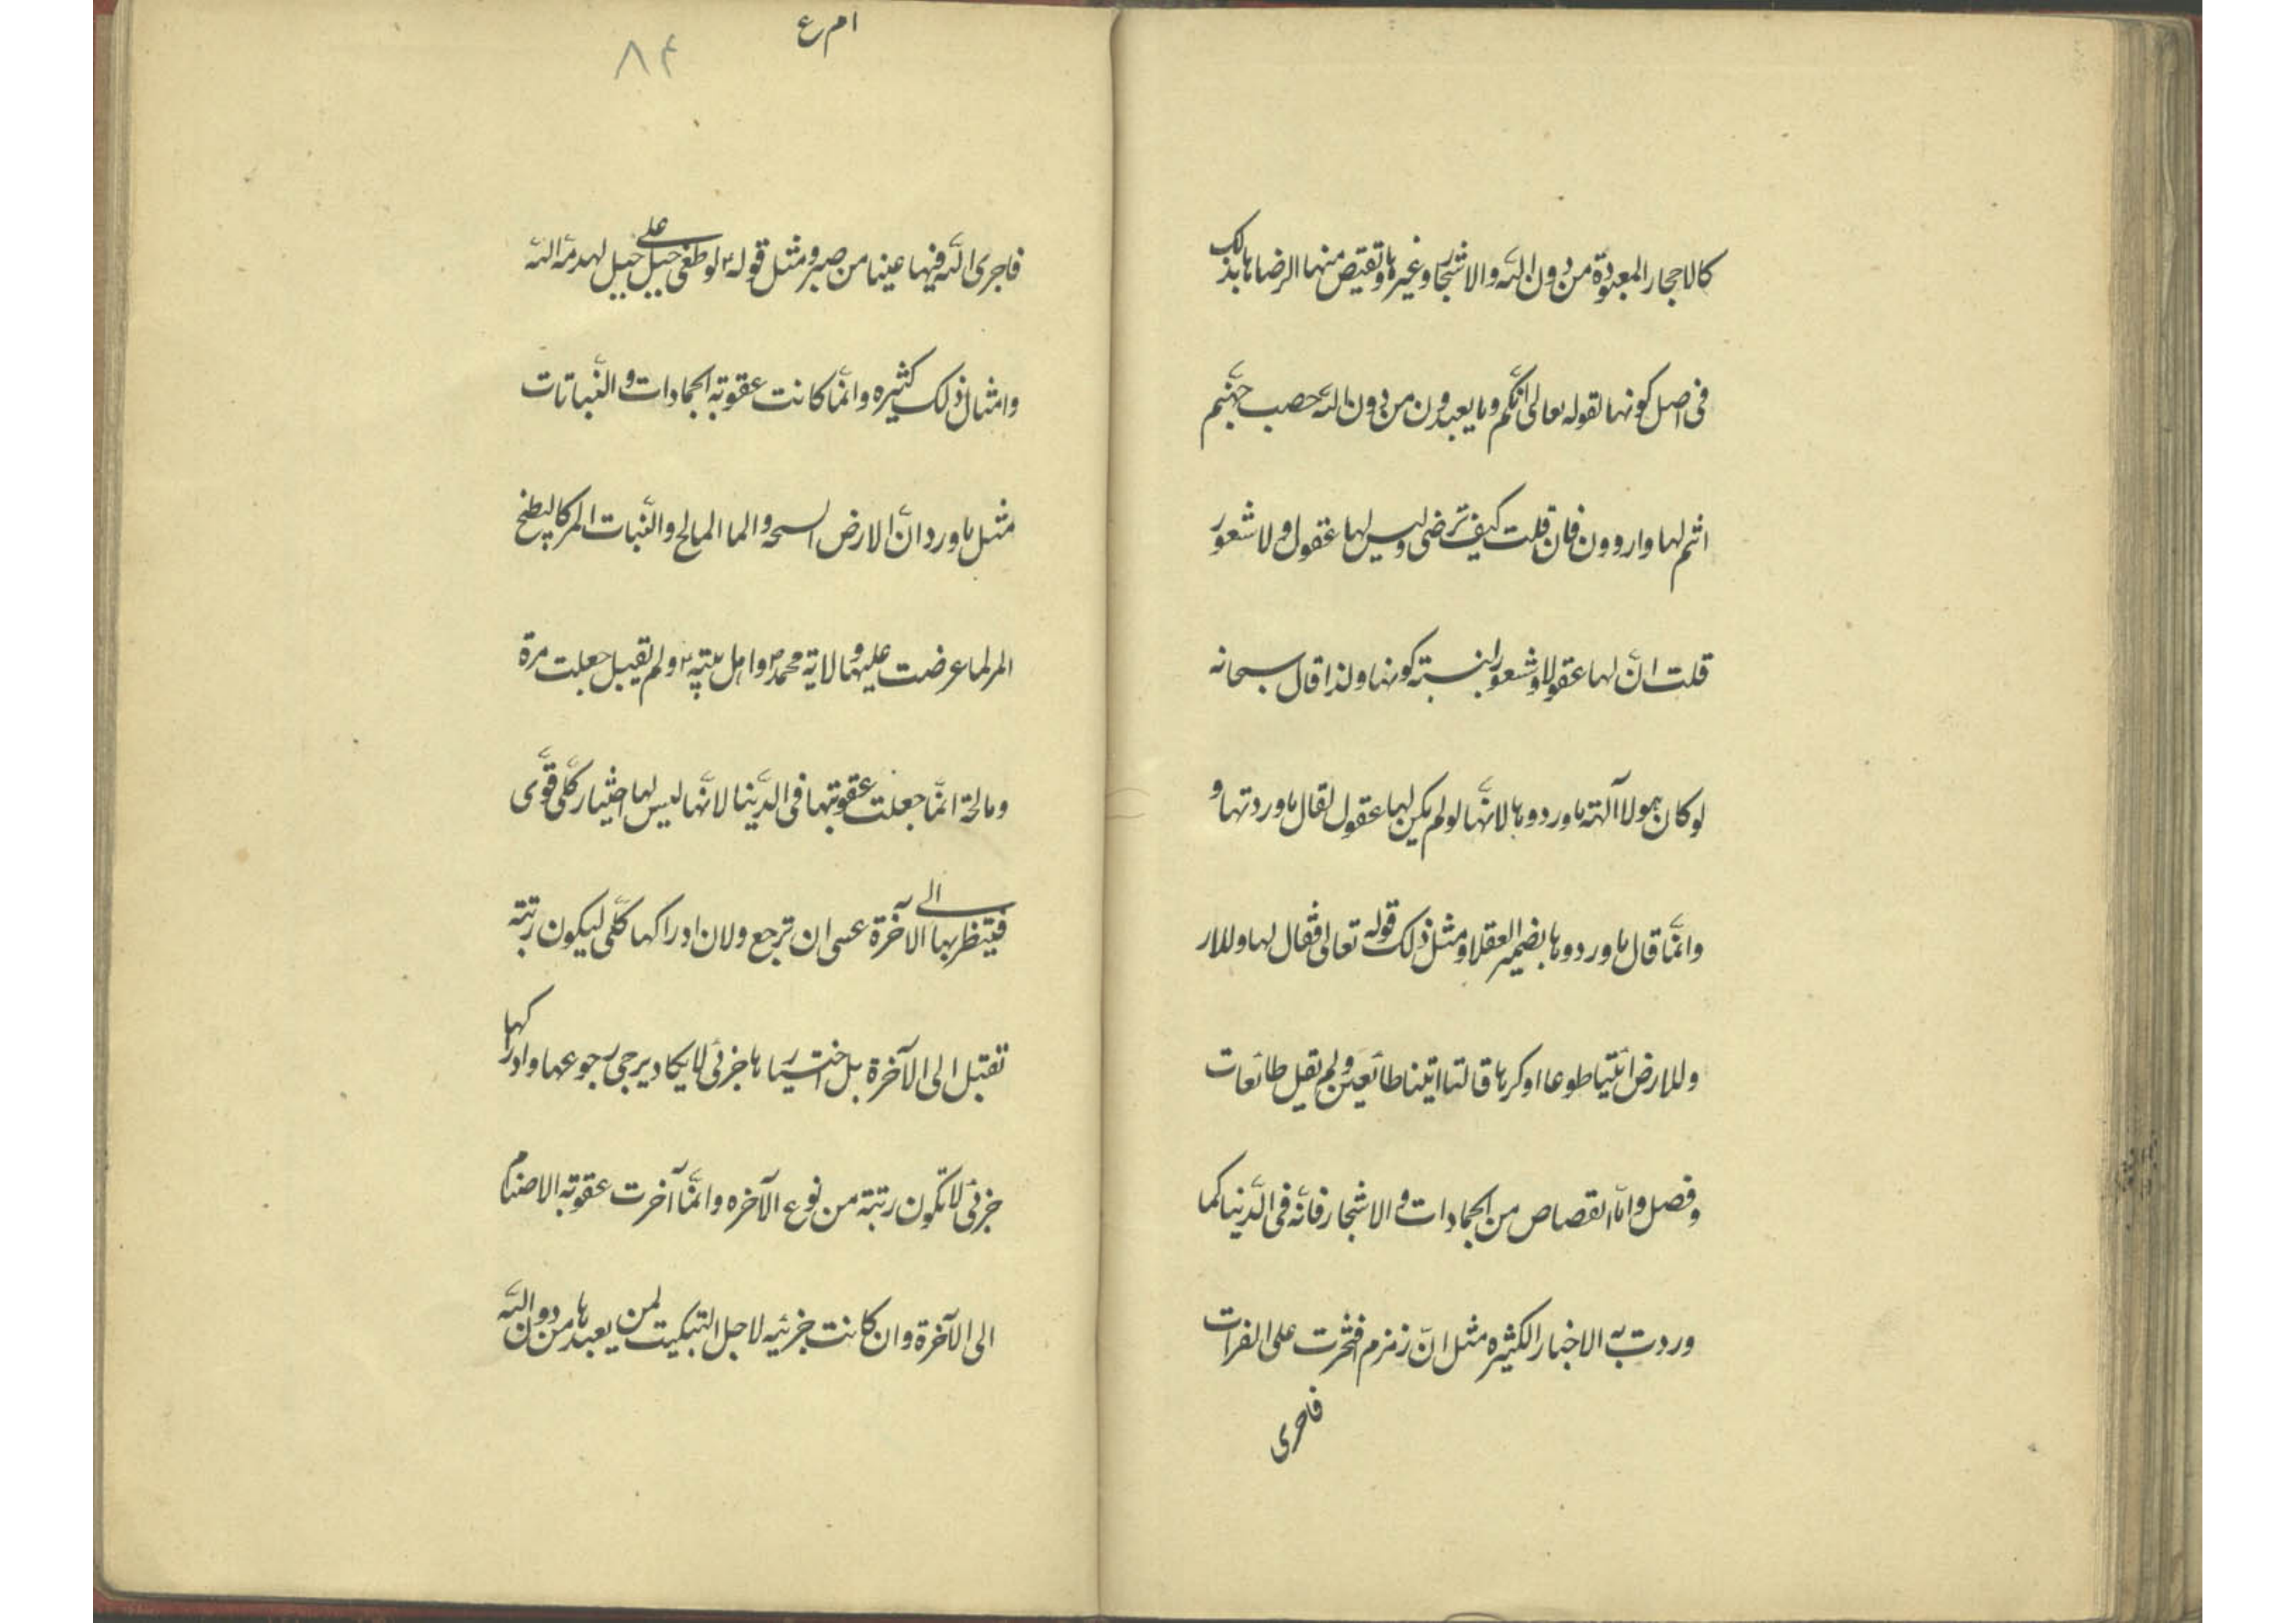 كالاحجار المعبودة من دون الله والاشجار وغيرها وتقتص منها لرضاها بذلك
فى اصل كونها لقوله تعالى انكم وما يعبدون من دون الله حصب جهنم
انتم لها واردون فان قلت كيف ترضى وليس لها عقول ولا شعور
قلت انّ لها عقولا وشعورا بنسبة كونها ولذا قال سبحانه
لو كان هولا آلهة ما وردوها لانّها لو لم يكن لها عقول لقال ما وردتها و
وانّما قال ما وردوها بضمير العقلا ومثل ذلك قوله تعالى فقال لها وللار
وللارض ائتيا طوعا او كرها قالتا اتينا طائعين ولم تقل طائعات
وفصل وامّا القصاص من الجمادات والاشجار فانّه فى الدّنيا كما
وردت به الاخبار الكثيره مثل انّ زمزم افتخرت على الفرات
فاجرى
ام ع
٨٤
فاجرى الله فيها عينا من صبر ومثل قوله ٢ لو طغى جبل على جبل لهدمه الله
وامثال ذلك كثيره وانّما كانت عقوبة الجمادات والنّباتات
مثل ما ورد انّ الارض السبخه والما المالح والنّبات المر كالبطيخ
المر لما عرضت عليها ولاية محمد ٢ واهل بيته ٢ ولم تقبل جعلت مرة
ومالحة انّما جعلت عقوبتها فى الدّنيا لانّها ليس لها اختيار كلّى قوّى
فينتظر بها الى الآخرة عسى ان ترجع ولان ادراكها كلّى ليكون رتبته
تقبل الى الآخرة بل اختيارها جزئى لا يكاد يرجى رجوعها وادراكها
جزئى لا تكون رتبة من نوع الآخره وانّما آخرت عقوبة الاصنام
الى الآخرة وان كانت جزئيه لاجل التبكيت لمن يعبدها من دون الله